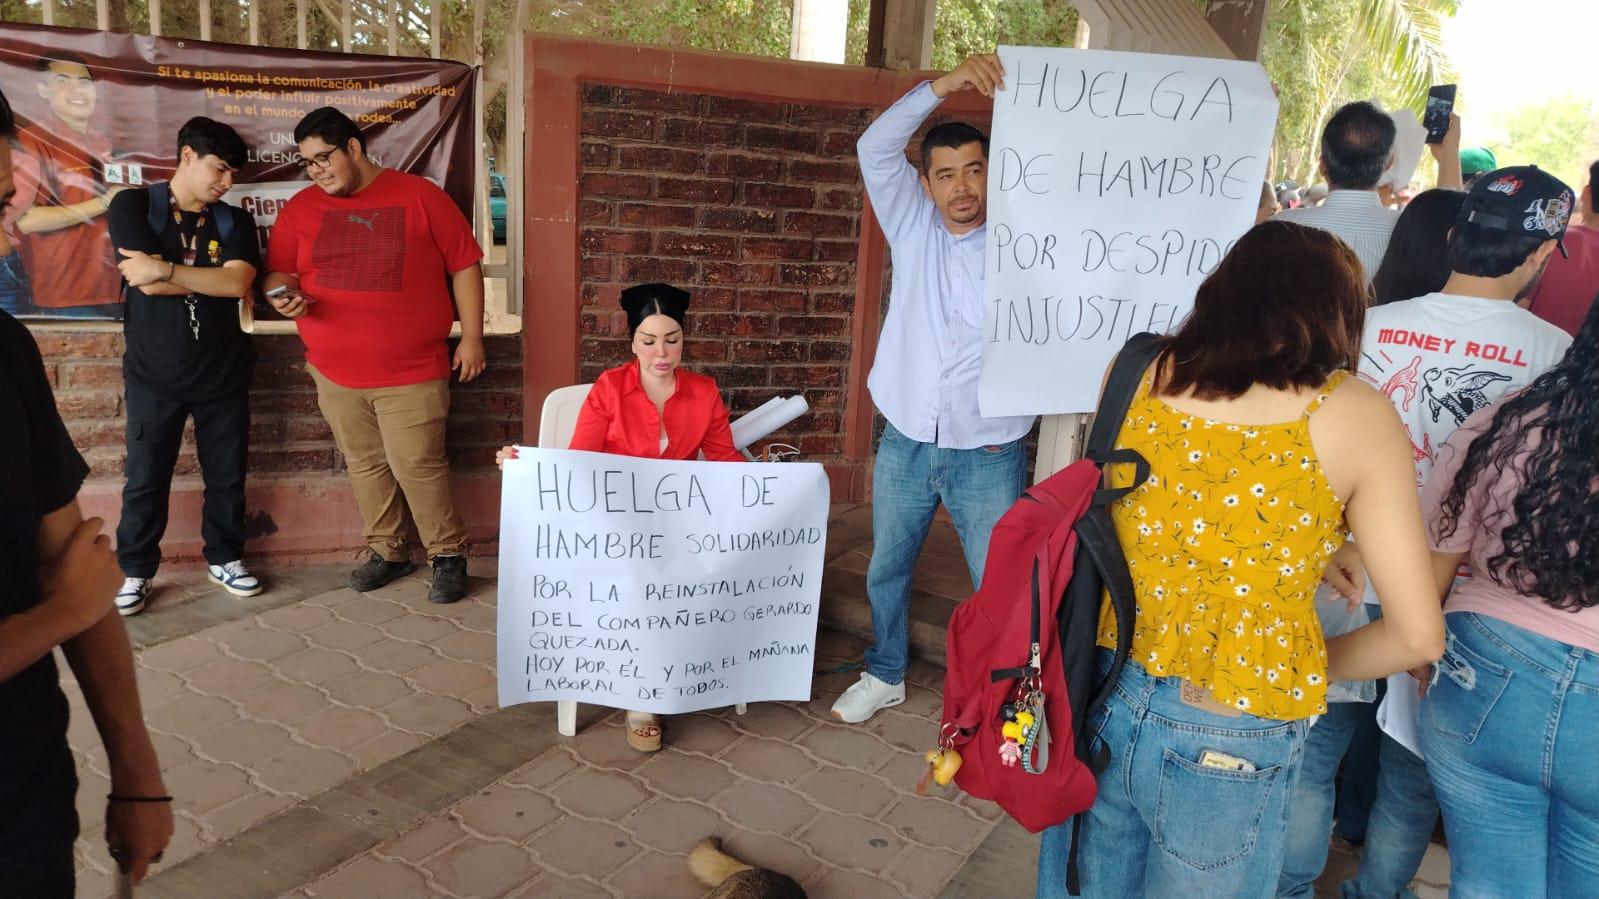 Si te apasiona la comunicación, la creatividad
y el poder influir positivamente
en el mundo rodea...
LICEN
Cien
PUMA
HUELGA DE
HAMBRE SOLIDARIDAD
POR LA REINSTALACIÓN
DEL COMPAÑERO GERARDO
QUEZADA.
HOY POR ÉL Y POR EL MAÑANA
LABORAL DE TODOS.
HUELGA
DE HAMBRE
POR DESPID
INJUSTIFI
MONEY ROLL